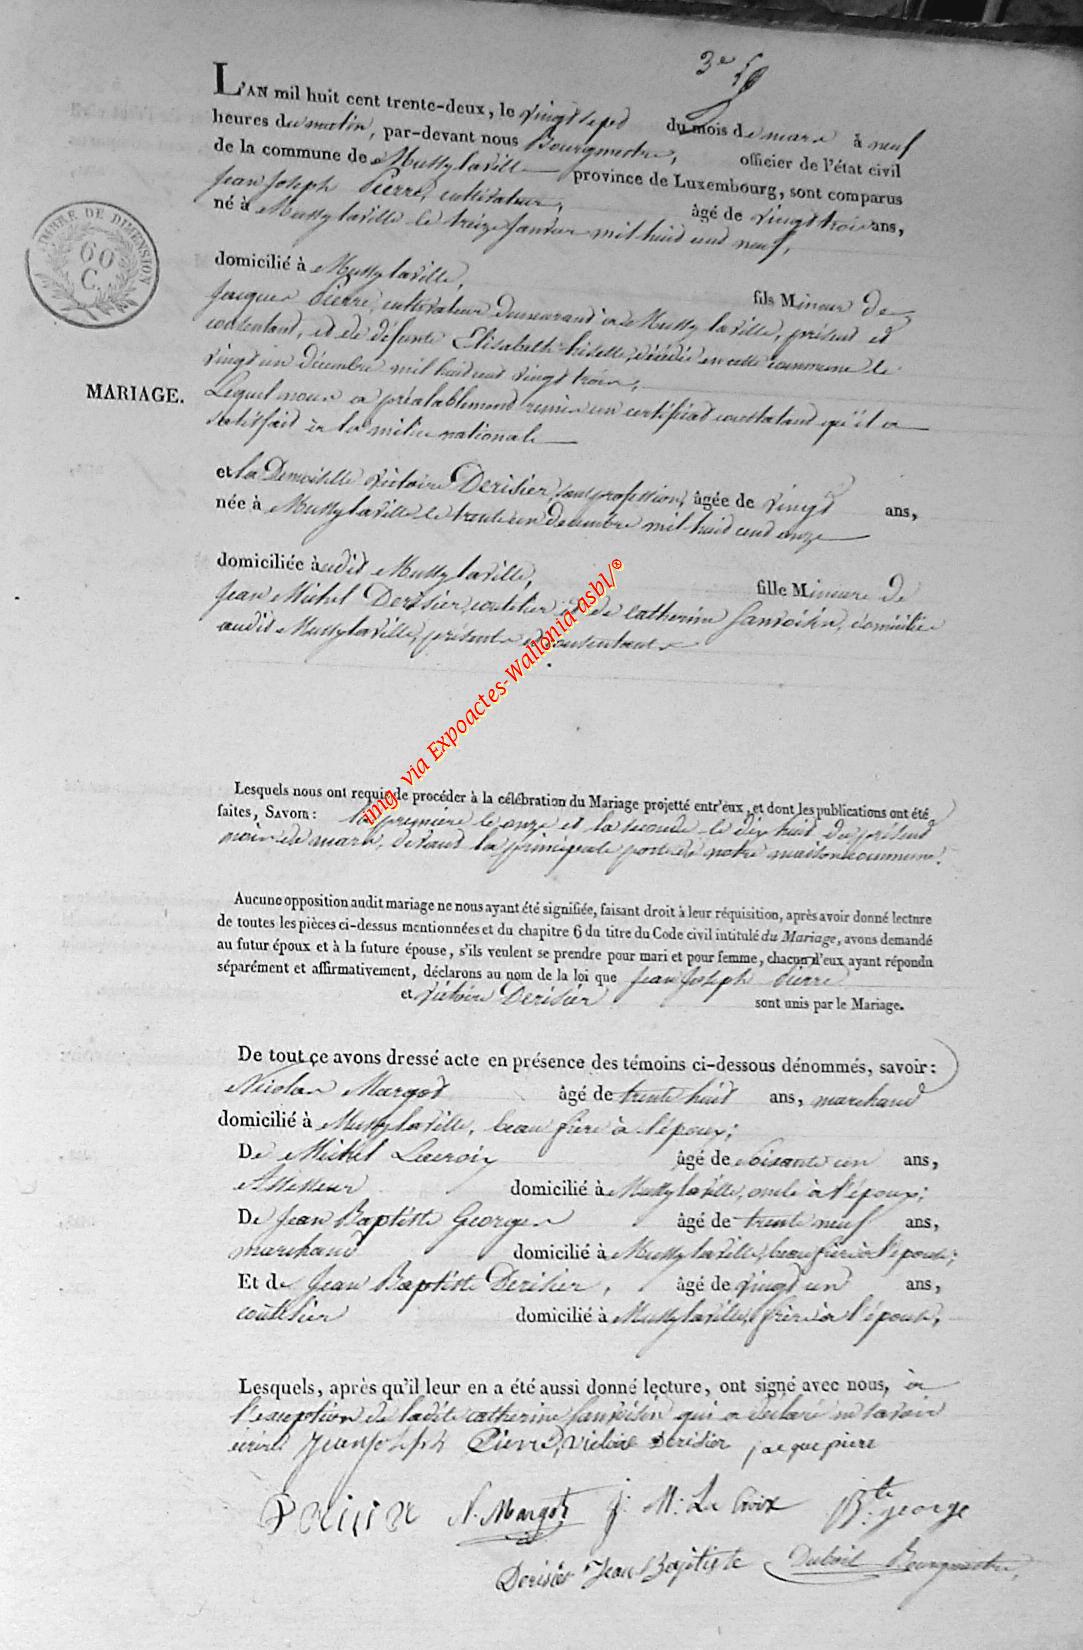 3e
L'AN mil huit cent trente-deux, le vingt sept du mois de mars à neuf
heures du matin, par-devant nous Bourgmestre, officier de l'état civil
de la commune de Mussy laville province de Luxembourg, sont comparus
Jean Joseph Pierre, cultivateur, âgé de vingt trois ans,
né à Mussy laville le treize janvier mil huit cent neuf,
TIMBRE DE DIMENSION
60
C.
domicilié à Mussy laville, fils Mineur de
Jacques Pierre, cultivateur demeurant à Mussy laville, présent et
consentant, et de défunte Elisabeth décédée en cette commune le
vingt un décembre mil huit cent vingt trois,
MARIAGE.
Lequel nous a préalablement remis un certificat constatant qu'il a
satisfait à la milice nationale
et la Demoiselle Victoire Derisier, sans profession, âgée de vingt ans,
née à Mussy laville le trente un decembre mil huit cent onze
domiciliée audit Mussy laville, fille Mineure de
Jean Michel Derisier, coutelier et de catherine Janvoisin, domiciliés
audit Mussy laville, présents et consentants
img. via Expoactes-Wallonia asbl/®
Lesquels nous ont requis de procéder à la célébration du Mariage projetté entr'eux, et dont les publications ont été
faites, SAVOIR: la première le onze et la seconde le dix huit du présent
mois de mars, devant la principale porte de notre maison commune.
Aucune opposition audit mariage ne nous ayant été signifiée, faisant droit à leur réquisition, après avoir donné lecture
de toutes les pièces ci-dessus mentionnées et du chapitre 6 du titre du Code civil intitulé du Mariage, avons demandé
au futur époux et à la future épouse, s'ils veulent se prendre pour mari et pour femme, chacun d'eux ayant répondu
séparément et affirmativement, déclarons au nom de la loi que Jean Joseph Pierre
et Victoire Derisier sont unis par le Mariage.
De tout ce avons dressé acte en présence des témoins ci-dessous dénommés, savoir:
Nicolas Margot âgé de trente huit ans, marchand
domicilié à Mussy laville, beau frère à l'époux;
De Michel Lacroix âgé de soixante un ans,
Assesseur domicilié à Mussy laville, oncle à l'époux;
De Jean Baptiste Georges âgé de trente neuf ans,
marchand domicilié à Mussy laville, beau frère à l'épouse;
Et de Jean Baptiste Derisier, âgé de vingt un ans,
coutelier domicilié à Mussy laville, frère à l'épouse,
Lesquels, après qu'il leur en a été aussi donné lecture, ont signé avec nous, à
l'exception de ladite catherine Janvoisin qui a déclaré ne savoir
écrire Jean joseph Pierre, Victoire Derisier jacque piere
N. Margot J: M: Le Croix Bte george
Derisier Jean Baptiste Bourgmestre